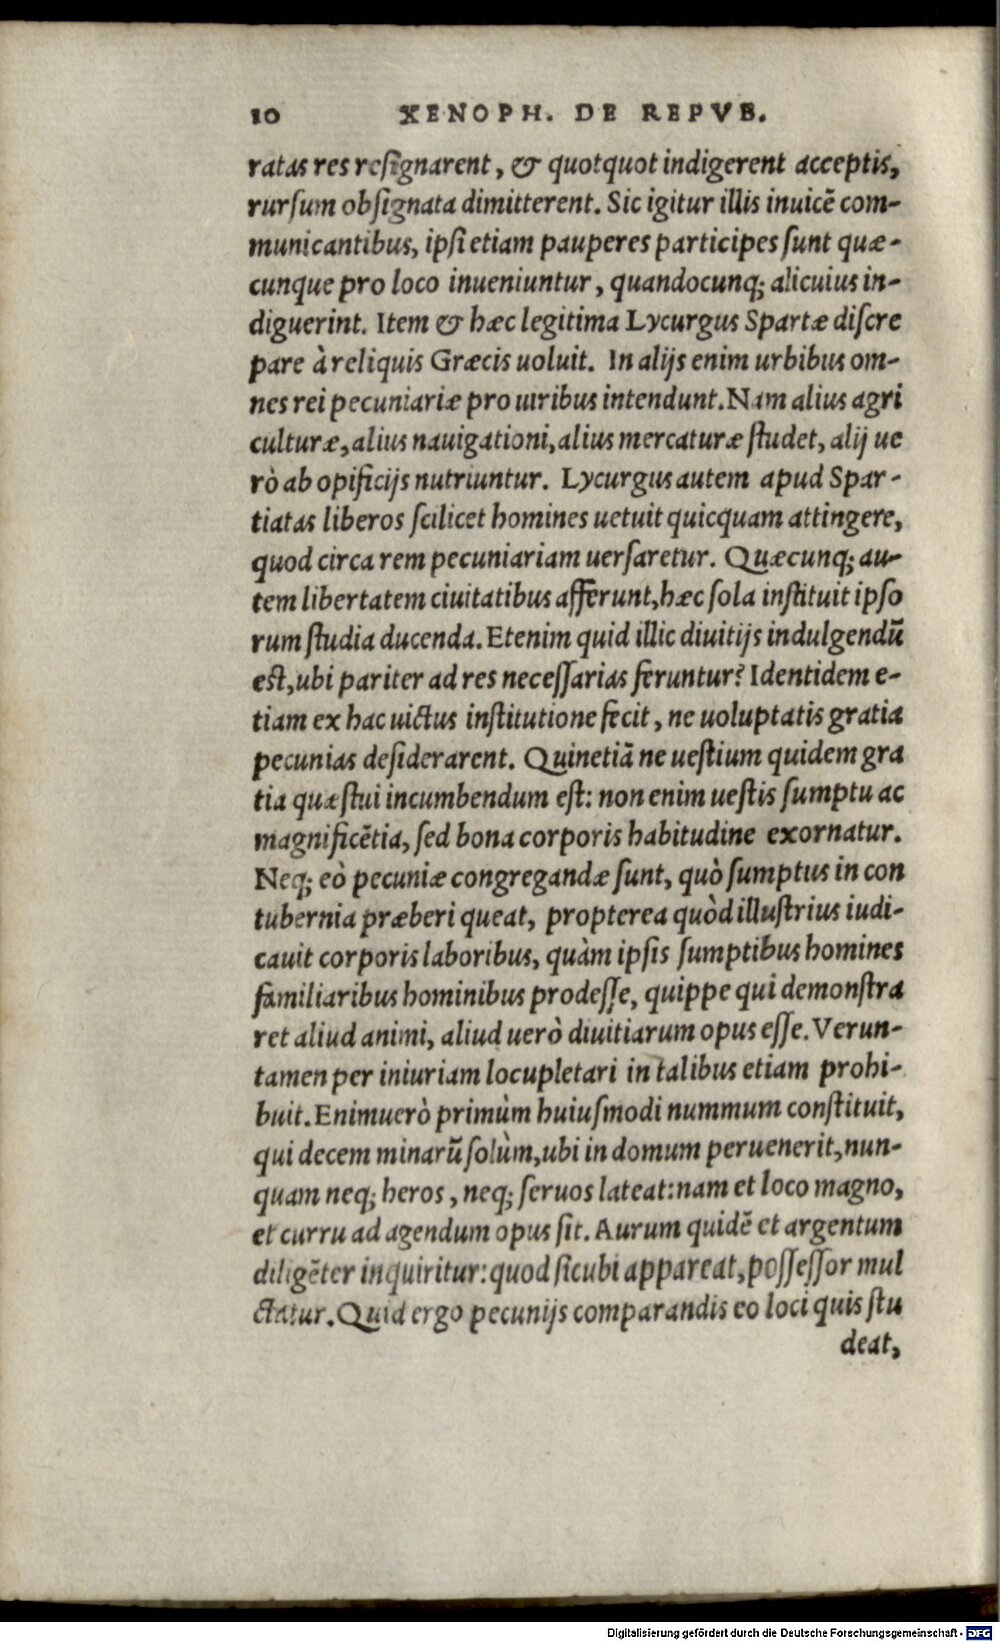 10 XENOPH. DE REPVB.
ratas res resignarent, & quotquot indigerent acceptis,
rursum obsignata dimitterent. Sic igitur illis inuicē com-
municantibus, ipsi etiam pauperes participes sunt quæ-
cunque pro loco inueniuntur, quandocunq; alicuius in-
diguerint. Item & hæc legitima Lycurgus Spartæ discre
pare à reliquis Græcis uoluit. In alijs enim urbibus om-
nes rei pecuniariæ pro uiribus intendunt. Nam alius agri
culturæ, alius nauigationi, alius mercaturæ studet, alij ue
rò ab opificijs nutriuntur. Lycurgus autem apud Spar-
tiatas liberos scilicet homines uetuit quicquam attingere,
quod circa rem pecuniariam uersaretur. Quæcunq; au-
tem libertatem ciuitatibus afferunt, hæc sola instituit ipso
rum studia ducenda. Etenim quid illic diuitijs indulgendū
est, ubi pariter ad res necessarias feruntur? Identidem e-
tiam ex hac uictus institutione fecit, ne uoluptatis gratia
pecunias desiderarent. Quinetiā ne uestium quidem gra
tia quæstui incumbendum est: non enim uestis sumptu ac
magnificētia, sed bona corporis habitudine exornatur.
Neq; eò pecuniæ congregandæ sunt, quò sumptus in con
tubernia præberi queat, propterea quòd illustrius iudi-
cauit corporis laboribus, quàm ipsis sumptibus homines
familiaribus hominibus prodesse, quippe qui demonstra
ret aliud animi, aliud uerò diuitiarum opus esse. Verun-
tamen per iniuriam locupletari in talibus etiam prohi-
buit. Enimuerò primùm huiusmodi nummum constituit,
qui decem minarū solùm, ubi in domum peruenerit, nun-
quam neq; heros, neq; seruos lateat: nam et loco magno,
et curru ad agendum opus sit. Aurum quidē et argentum
diligēter inquiritur: quod sicubi appareat, possessor mul
ctatur. Quid ergo pecunijs comparandis eo loci quis stu
deat,
Digitalisierung gefördert durch die Deutsche Forschungsgemeinschaft - DFG